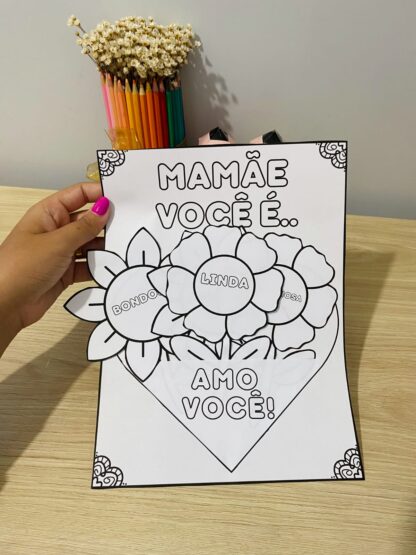 MAMÃE
VOCÊ É..
BONDO
LINDA
OSA
AMO
VOCÊ!